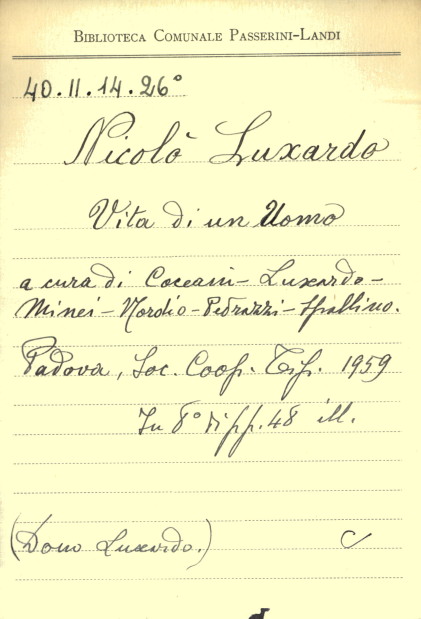 BIBLIOTECA COMUNALE PASSERINI-LANDI
40.II.14.26°
Nicolò Luxardo
Vita di un Uomo
a cura di Coceani - Luxardo -
Minei - Nordio - Pedrazzi - Spallino.
Padova, Soc. Coop. Tip. 1959
In 8° di pp. 48 ill.
(Dono Luxardo.)